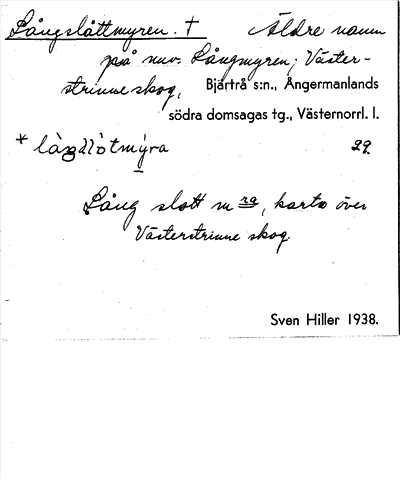 Långslåttmyren. † Äldre namn
på nuv. Långmyren, Väster-
strinne skog, Bjärtrå s:n., Ångermanlands
södra domsagas tg., Västernorrl. l.
29.
Lång slått m ra, karta över
Västerstrinne skog.
Sven Hiller 1938.